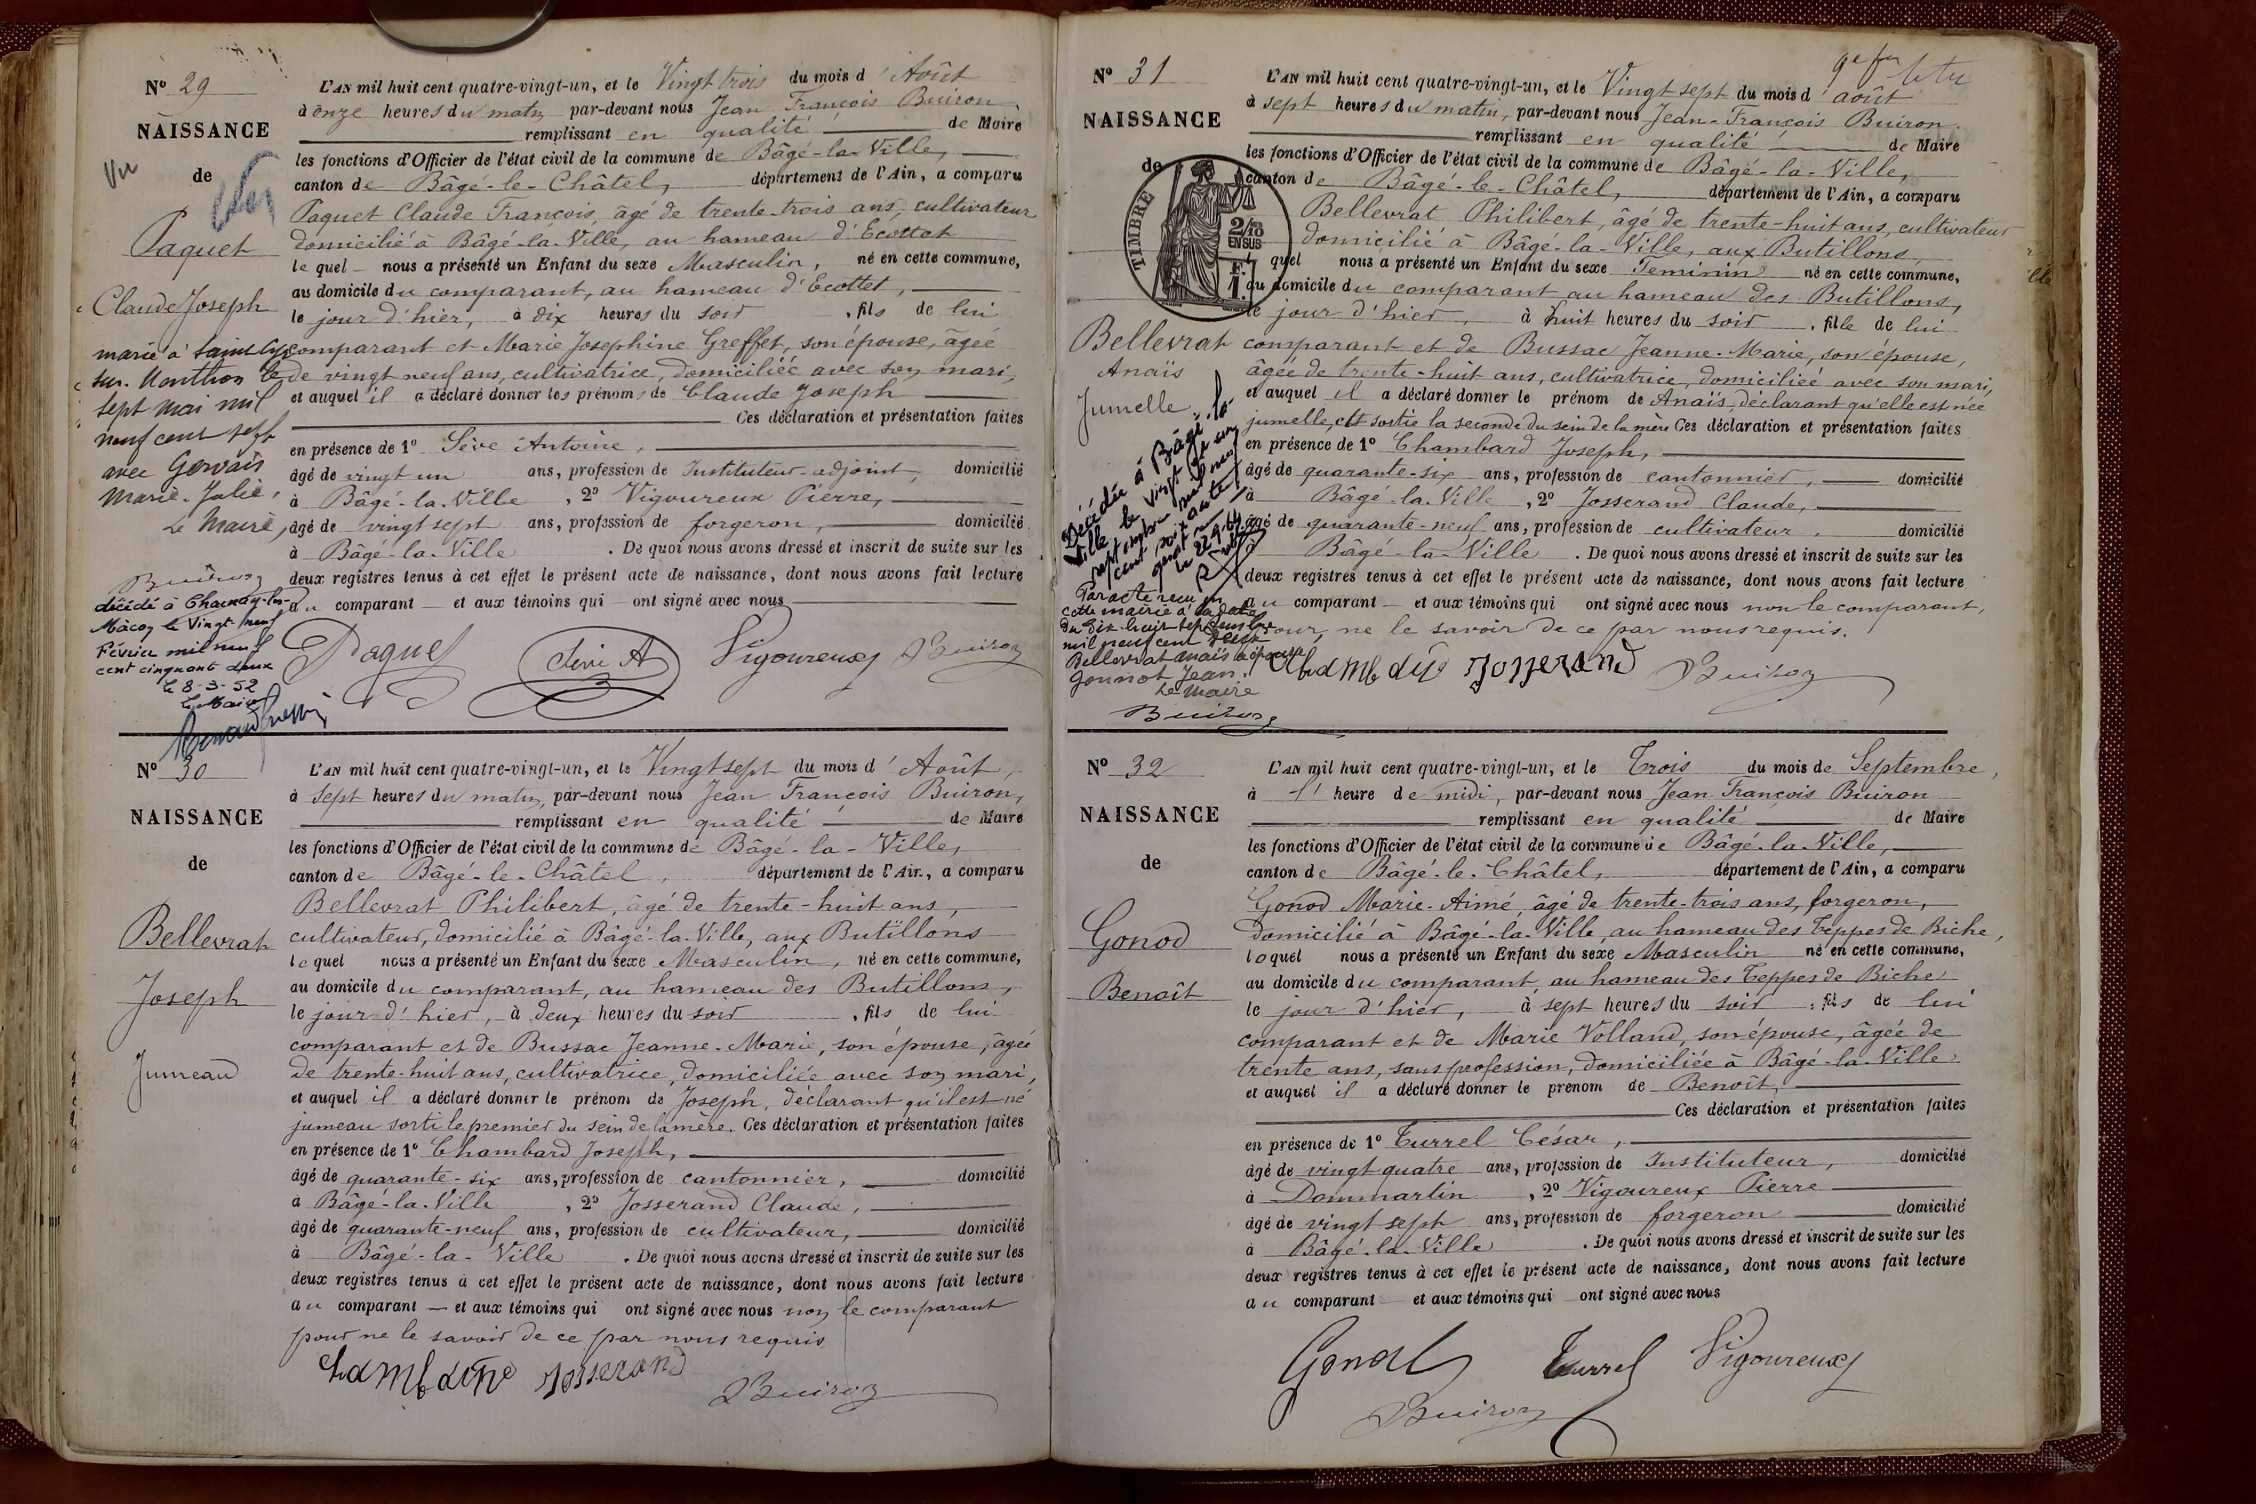 N° 29
NAISSANCE
de
Vu
Vu
Paquet
Claude Joseph
marié à Saint Cyr
sur Menthon le
sept mai mil
neuf cent sept
avec Gervais
Marie-Julie,
Le Maire,
Buiron
décédé à Charnay-les-
Mâcon le Vingt neuf
Février mil neuf
cent cinquante deux
le 8-3-52
Le Maire
L'AN mil huit cent quatre-vingt-un, et le Vingt trois du mois d'Août
à onze heures du matin par-devant nous Jean François Buiron,
remplissant en qualité de Maire
les fonctions d'Officier de l'état civil de la commune de Bâgé-la-Ville,
canton de Bâgé-le-Châtel, département de l'Ain, a comparu
Paquet Claude François, âgé de trente-trois ans, cultivateur
domicilié à Bâgé-la-Ville, au hameau d'Ecottet
lequel nous a présenté un Enfant du sexe Masculin, né en cette commune,
au domicile du comparant, au hameau d'Ecottet,
le jour d'hier, à dix heures du soir, fils de lui
comparant et Marie Josephine Greffet, son épouse, âgée
de vingt neuf ans, cultivatrice, domiciliée avec son mari,
et auquel il a déclaré donner les prénoms de Claude Joseph
Ces déclaration et présentation faites
en présence de 1° Sève Antoine,
âgé de vingt un ans, profession de Instituteur-adjoint, domicilié
à Bâgé-la-Ville, 2° Vigoureux Pierre,
âgé de vingt sept ans, profession de forgeron, domicilié
à Bâgé-la-Ville. De quoi nous avons dressé et inscrit de suite sur les
deux registres tenus à cet effet le présent acte de naissance, dont nous avons fait lecture
au comparant et aux témoins qui ont signé avec nous
Paquet Sève A Vigoureux Buiron
N° 30
NAISSANCE
de
Bellevrat
Joseph
Jumeau
L'AN mil huit cent quatre-vingt-un, et le Vingt sept du mois d'Août,
à sept heures du matin, par-devant nous Jean François Buiron,
remplissant en qualité de Maire
les fonctions d'Officier de l'état civil de la commune de Bâgé-la-Ville,
canton de Bâgé-le-Châtel, département de l'Ain, a comparu
Bellevrat Philibert, âgé de trente-huit ans,
cultivateur, domicilié à Bâgé-la-Ville, aux Butillons
lequel nous a présenté un Enfant du sexe Masculin, né en cette commune,
au domicile du comparant, au hameau des Butillons,
le jour d'hier, à deux heures du soir, fils de lui
comparant et de Bussac Jeanne-Marie, son épouse, âgée
de trente-huit ans, cultivatrice, domiciliée avec son mari,
et auquel il a déclaré donner le prénom de Joseph, déclarant qu'il est né
jumeau sorti le premier du sein de la mère. Ces déclaration et présentation faites
en présence de 1° Chambard Joseph,
âgé de quarante-six ans, profession de cantonnier, domicilié
à Bâgé-la-Ville, 2° Josserand Claude,
âgé de quarante-neuf ans, profession de cultivateur, domicilié
à Bâgé-la-Ville. De quoi nous avons dressé et inscrit de suite sur les
deux registres tenus à cet effet le présent acte de naissance, dont nous avons fait lecture
au comparant et aux témoins qui ont signé avec nous non le comparant
pour ne le savoir de ce par nous requis
Josserand
Buiron
N° 31
NAISSANCE
de
TIMBRE
2/10
EN SUS
F.
1.
Bellevrat
Anaïs
Jumelle
Décédée à Bâgé-la-
Ville le vingt et un
septembre mil neuf
cent soixante
quatre
le 22-9-64
Par acte reçu en
cette mairie à la date
du dix huit septembre
mil neuf cent
Bellevrat Anaïs a épousé
Gonnot Jean.
Le Maire
Buiron
L'AN mil huit cent quatre-vingt-un, et le Vingt sept du mois d'août
à sept heures du matin, par-devant nous Jean-François Buiron
remplissant en qualité de Maire
les fonctions d'Officier de l'état civil de la commune de Bâgé-la-Ville,
canton de Bâgé-le-Châtel, département de l'Ain, a comparu
Bellevrat Philibert, âgé de trente-huit ans, cultivateur
domicilié à Bâgé-la-Ville, aux Butillons,
quel nous a présenté un Enfant du sexe Feminin né en cette commune,
au domicile du comparant au hameau des Butillons,
le jour d'hier, à huit heures du soir, fille de lui
comparant et de Bussac Jeanne-Marie, son épouse,
âgée de trente-huit ans, cultivatrice, domiciliée avec son mari,
et auquel il a déclaré donner le prénom de Anaïs, déclarant qu'elle est née
jumelle, est sortie la seconde du sein de la mère Ces déclaration et présentation faites
en présence de 1° Chambard Joseph,
âgé de quarante-six ans, profession de cantonnier, domicilié
à Bâgé-la-Ville, 2° Josserand Claude,
âgé de quarante-neuf ans, profession de cultivateur, domicilié
Bâgé-la-Ville. De quoi nous avons dressé et inscrit de suite sur les
deux registres tenus à cet effet le présent acte de naissance, dont nous avons fait lecture
au comparant et aux témoins qui ont signé avec nous non le comparant,
pour ne le savoir de ce par nous requis.
Josserand Buiron
N° 32
NAISSANCE
de
Gonod
Benoît
L'AN mil huit cent quatre-vingt-un, et le Trois du mois de Septembre,
à 1 heure de midi, par-devant nous Jean François Buiron
remplissant en qualité de Maire
les fonctions d'Officier de l'état civil de la commune de Bâgé-la-Ville,
canton de Bâgé-le-Châtel, département de l'Ain, a comparu
Gonod Marie-Aimé, âgé de trente-trois ans, forgeron,
domicilié à Bâgé-la-Ville, au hameau des Teppes de Biche,
lequel nous a présenté un Enfant du sexe Masculin né en cette commune,
au domicile du comparant, au hameau des Teppes de Biche
le jour d'hier, à sept heures du soir, fils de lui
comparant et de Marie Volland, son épouse, âgée de
trente ans, sans profession, domiciliée à Bâgé-la-Ville
et auquel il a déclaré donner le prénom de Benoît,
Ces déclaration et présentation faites
en présence de 1° Turrel César,
âgé de vingt quatre ans, profession de Instituteur, domicilié
à Dommartin, 2° Vigoureux Pierre
âgé de vingt sept ans, profession de forgeron domicilié
à Bâgé-la-Ville. De quoi nous avons dressé et inscrit de suite sur les
deux registres tenus à cet effet le présent acte de naissance, dont nous avons fait lecture
au comparant et aux témoins qui ont signé avec nous
Gonod Turrel Vigoureux
Buiron